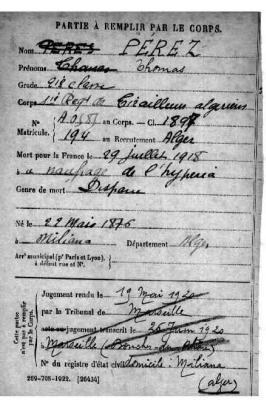 PARTIE À REMPLIR PAR LE CORPS.
Nom PEREZ PEREZ
Prénoms Thomas
Grade 2è classe
Corps 1er Regt de Tirailleurs algeriens
N° au Corps. — Cl. 1897
Matricule. 194 au Recrutement Alger
Mort pour la France le 29 juillet 1918
à naufrage de l'hyperia
Genre de mort Disparu
Né le 22 Mars 1876
à Miliana Département Alger
Arrt municipal (pr Paris et Lyon),
à défaut rue et N°.
Cette partie n'est pas à remplir par le Corps.
Jugement rendu le 19 Mai 1920
par le Tribunal de Marseille
acte ou jugement transcrit le 26 Juin 1920
Marseille (Bouches du Rhône)
N° du registre d'état civil domicile : Miliana
(alger)
269-708-1922. [26434]